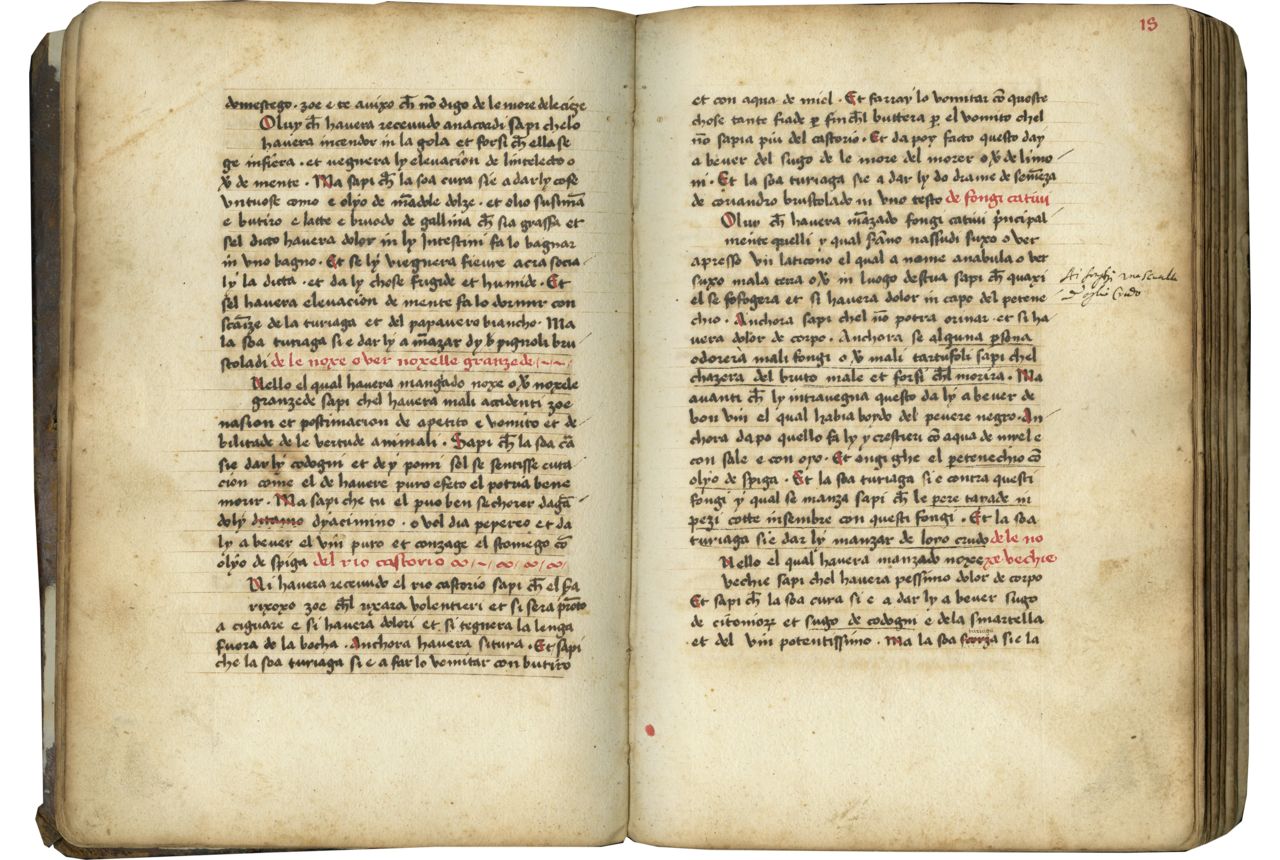 domestego . zoe e te avixo ch̄ nō digo de le more dele cieze
Oluy ch̄ havera recevudo anacordi sapi chelo
havera incendor in la gola et forsi ch̄ ella se
ge infiera . et vegnera ly elevaciōn de lintelecto o
de mente . Ma sapi ch̄ la soa cura sie a darly cose
untuose como e olyo de mādole dolze . et olio susimā
e butiro e latte e bruodo de gallina ch̄ sia grassa et
sel dicto havera dolor in ly Intestini fa lo bagnar
in uno bagno . Et se ly viegnera fievre acra socia
ly la dicta . et da ly chose frigide et humide . Et
sel havera elevacion de mente fa lo dormir con
de la turiaga et del papavero biancho . Ma
la soa turiaga si e dar ly a māzar dy pignoli bru
stoladi de le noxe o ver noxelle granzede
Nello el qual havera mangado noxe o noxele
granzede sapi chel havera mali accidenti zoe
nasion et postimacion de apetito e vomito et de
bilitade de le vertude animali . Sapi ch̄ la soa cūa
sie dar ly codogni et de y pomi sel se sentisse euta
cion come el de havere puro efeto el potria bene
morir . Ma sapi che tu el puo ben sechorer dagā
doly ditamo dyacimino . o vol dia pepereo et da
ly a bever el vin puro et conzage el stomego cō
olyo de spiga del rio castorio
Ni havera recevudo el rio castorio sapi ch̄ el fa
rixoxo zoe ch̄l rixara volentieri et si sera prōto
a ciguare e si havera dolori et si tegnera la lenga
fuora de la bocha . Anchora havera situra . Et sapi
che la soa turiaga si e a far lo vomitar con butiro
18
et con aqua de miel . Et farray lo vomitar cō queste
chose tante fiade p fin ch̄l buttera p el vomito chel
nō sapia piu del castorio . Et da poy facto questo day
a bever del sugo de le more del morer o de limo
ni . Et la soa turiaga sie a dar ly do drame de semēza
de coriandro brustolado in uno testo de fongi cativi
Oluy ch̄ havera māzado fongi cativi principal
mente quelli y qual sāno nassudi suxo o ver
apresso un laticono el qual a nome anabula o ver
suxo mala terra o in luogo destua sapi ch̄ quaxi
el se sofogera et si havera dolor in capo del petene
chio . Anchora sapi chel nō potra orinar . et si ha
vera dolor de corpo . Anchora se alguna psona
odorera mali fongi o mali tartufoli sapi chel
chazera del bruto male et forsi ch̄l morira . Ma
avanti ch̄ ly intravegna questo da ly a bever de
bon vin el qual habia bordo del pevere negro . An
chora da po quello fa ly y crestieri cō aqua de miel e
con sale e con oyo . Et ongi ghe el petenechio cō
olyo de spiga . Et la soa turiaga si e contra questi
fongi y qual se manza sapi ch̄ le pere taiade in
pezi cotte insembre con questi fongi . Et la soa
turiaga si e dar ly manzar de loro crudo de le no
Nello el qual havera manzado noxe xe vechie
vechie sapi chel havera pessimo dolor de corpo
Et sapi ch̄ la soa cura si e a dar ly a bever sugo
de citomorz et sugo de codogni e de la smartella
turiaga
et del vin potentissimo . Ma la soa scorza sie la